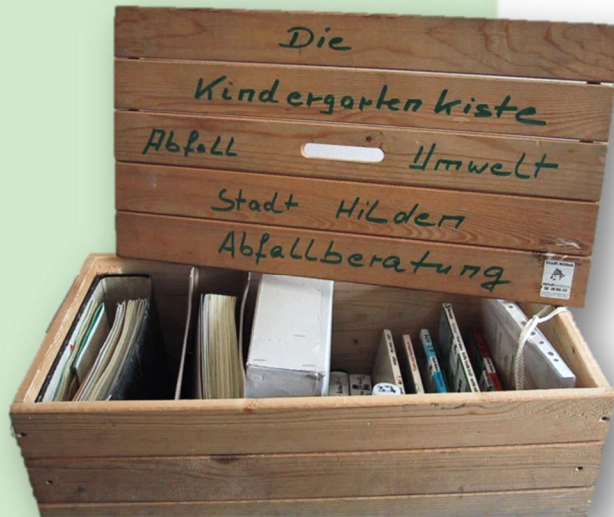 Die
Kindergartenkiste
Abfall Umwelt
Stadt Hilden
Abfallberatung
Stadt Hilden